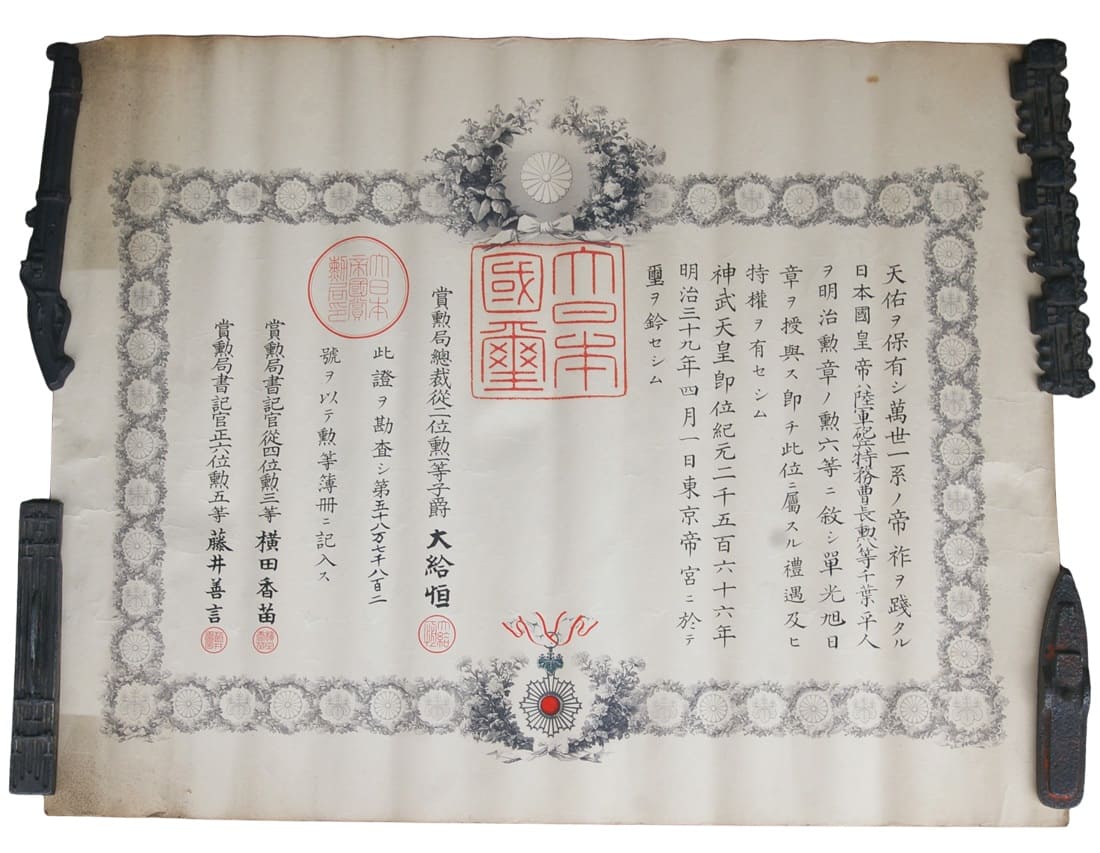 天佑ヲ保有シ萬世一系ノ帝祚ヲ踐タル
日本國皇帝ハ陸軍砲兵特務曹長勲八等千葉平人
ヲ明治勲章ノ勲六等ニ敘シ單光旭日
章ヲ授與ス即チ此位ニ屬スル禮遇及ヒ
特權ヲ有セシム
神武天皇即位紀元二千五百六十六年
明治三十九年四月一日東京帝宮ニ於テ
璽ヲ鈐セシム
大日本
國璽
賞勲局總裁從二位勲一等子爵 大給恒
此證ヲ勘査シ第五十八万七千八百二
號ヲ以テ勲等簿冊ニ記入ス
大日本
帝國賞
勲局印
賞勲局書記官從四位勲三等 横田香苗
賞勲局書記官正六位勲五等 藤井善言